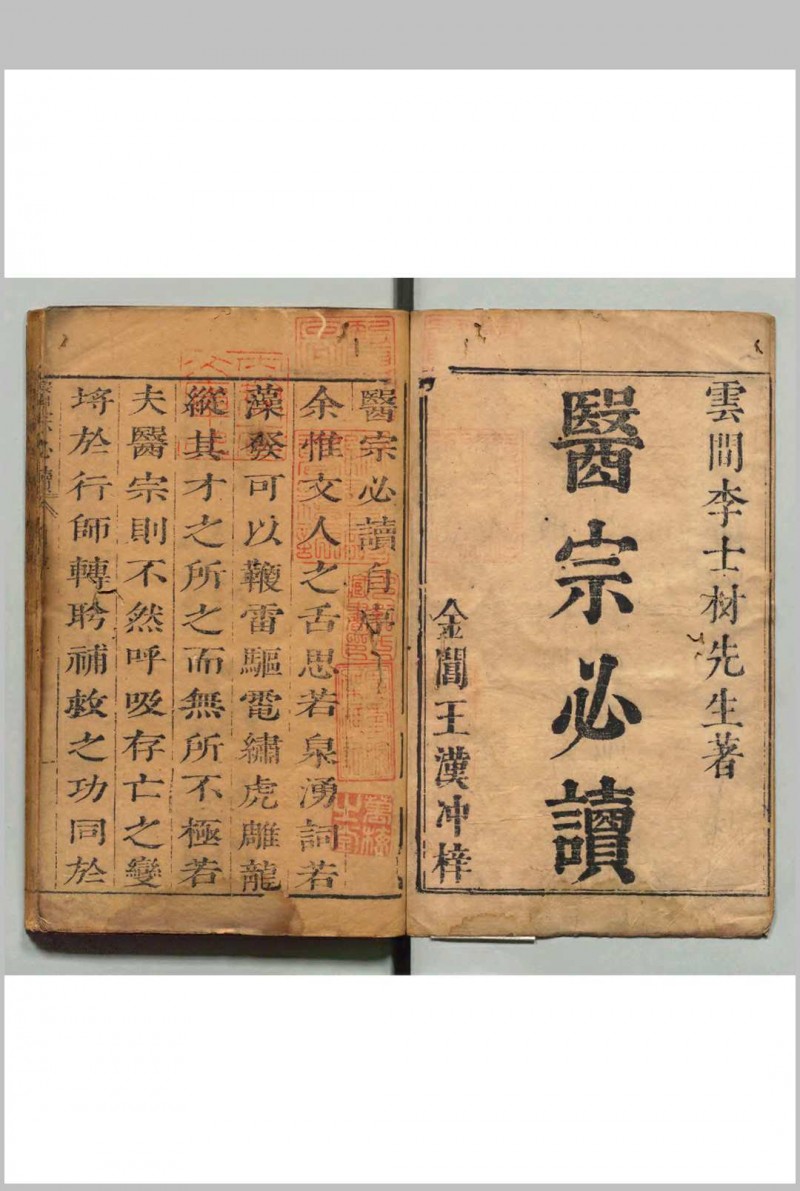 雲間李士材先生著
醫宗必讀
金閶王漢冲梓
醫宗必讀自序
余惟文人之舌思若泉湧詞若
藻發可以鞭雷驅電繡虎雕龍
縱其才之所之而無所不極若
夫醫宗則不然呼吸存亡之變
埒於行師轉盻補救之功同於